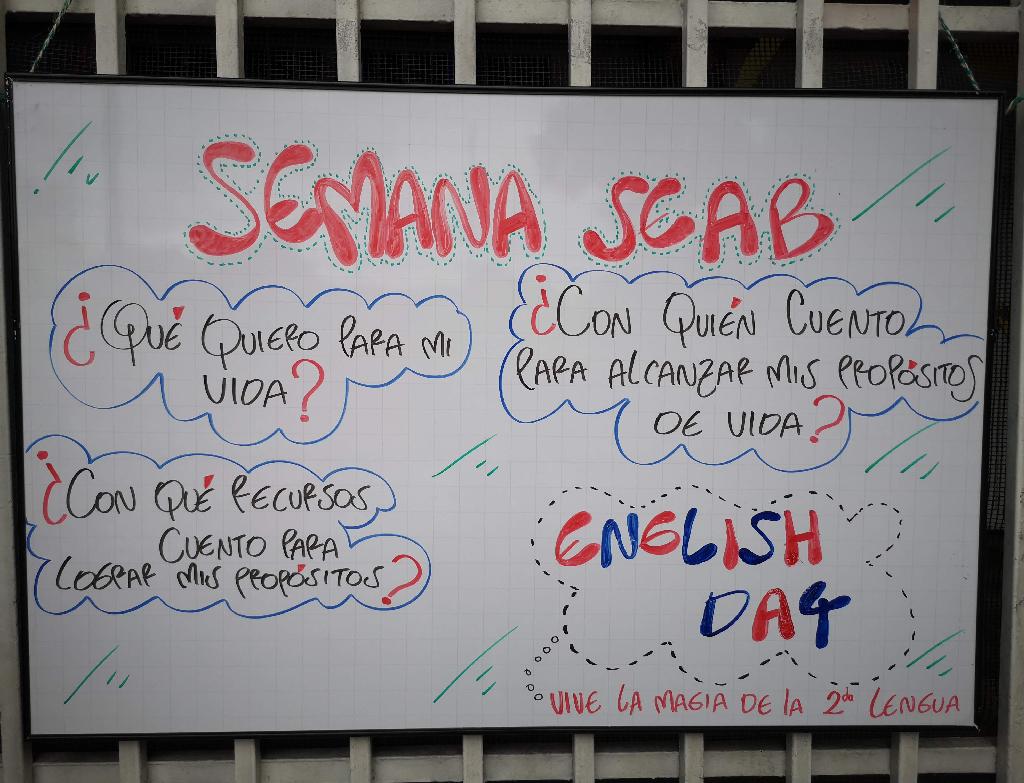 SEMANA SEAB
¿QUÉ QUIERO PARA MI
VIDA?
¿CON QUIÉN CUENTO
PARA ALCANZAR MIS PROPÓSITOS
DE VIDA?
¿CON QUÉ RECURSOS
CUENTO PARA
LOGRAR MIS PROPÓSITOS?
ENGLISH
DAY
VIVE LA MAGIA DE LA 2da LENGUA